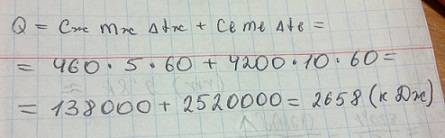 Q = Cж mж Δtж + Cв mв Δtв =
= 460 · 5 · 60 + 4200 · 10 · 60 =
= 138000 + 2520000 = 2658 (к Дж)